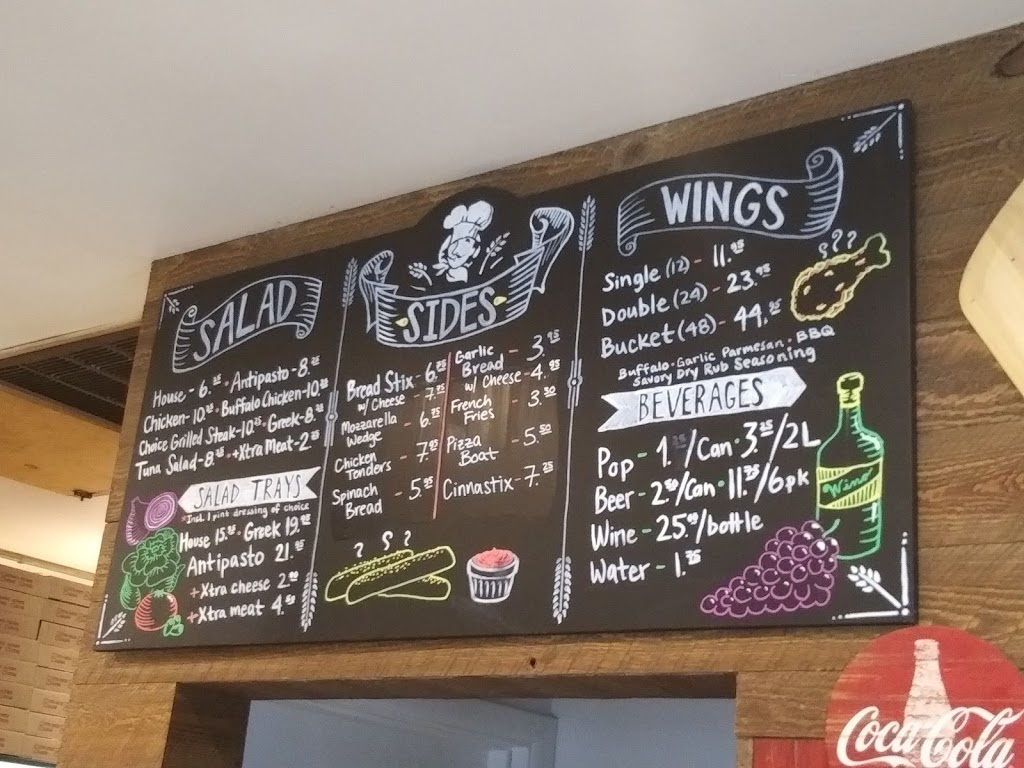 SALAD
House - 6.25 • Antipasto - 8.25
Chicken - 10.25 • Buffalo Chicken - 10.25
Choice Grilled Steak - 10.25 • Greek - 8.25
Tuna Salad - 8.25 • +Xtra Meat - 2.25
SALAD TRAYS
*Incl. 1 pint dressing of choice
House 15.25 • Greek 19.00
Antipasto 21.95
+Xtra cheese 2.00
+Xtra meat 4.50
SIDES
Bread Stix - 6.75
w/ Cheese - 7.75
Mozzarella Wedge - 6.75
Chicken Tenders - 7.95
Spinach Bread - 5.95
Garlic Bread - 3.95
w/ Cheese - 4.95
French Fries - 3.50
Pizza Boat - 5.50
Cinnastix - 7.25
WINGS
Single (12) - 11.95
Double (24) - 23.95
Bucket (48) - 44.95
Buffalo • Garlic Parmesan • BBQ
Savory Dry Rub Seasoning
BEVERAGES
Pop - 1.25/Can • 3.25/2L
Beer - 2.50/Can • 11.75/6pk
Wine - 25.00/bottle
Water - 1.75
Wine
Coca-Cola